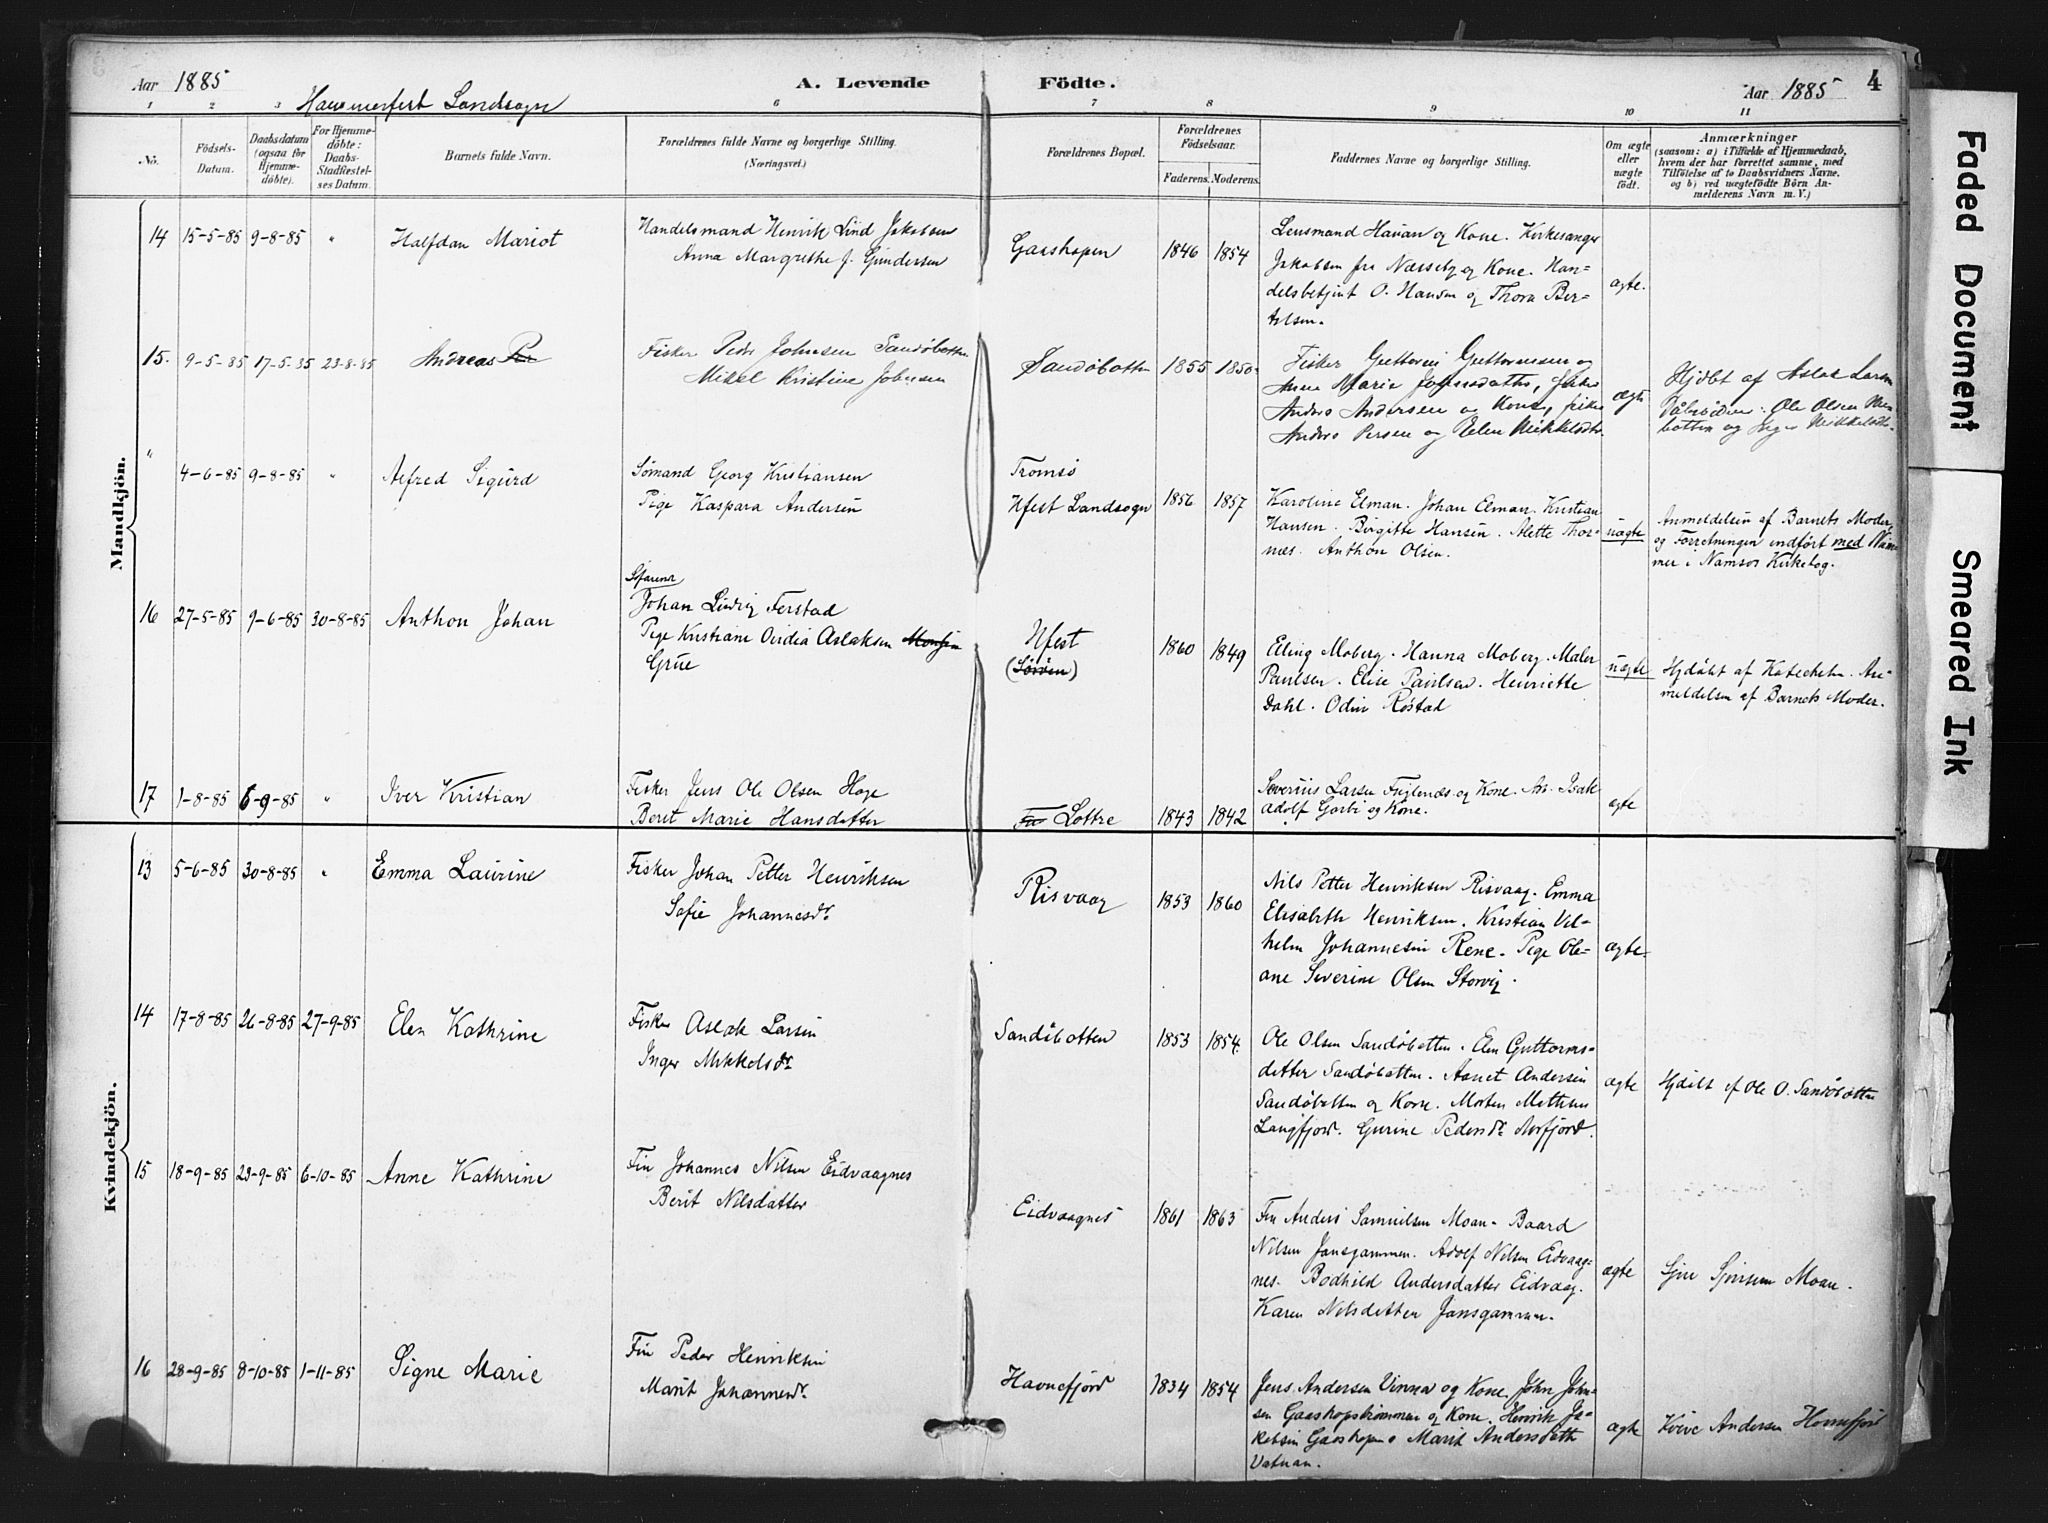 Aar 1885
A. Levende Födte.
Aar 1885
4
Hammerfest Landsogn
1 2 3 6 7 8 9 10 11
No.
Födsels-Datum.
Daabsdatum (ogsaa for Hjemme-döbte).
For Hjemme-döbte: Daabs-Stadfæstel-ses Datum.
Barnets fulde Navn.
Forældrenes fulde Navne og borgerlige Stilling. (Næringsvei.)
Forældrenes Bopæl.
Forældrenes Födselsaar.
Faderens. Moderens.
Faddernes Navne og borgerlige Stilling.
Om ægte eller uægte födt.
Anmærkninger
(saasom: a) i Tilfælde af Hjemmedaab,
hvem der har forrettet samme, med
Tilföielse af to Daabsvidners Navne,
og b) ved uægtefödte Börn An-
melderens Navn m. V.)
Mandkjön.
14 15-5-85 9-8-85 " Halfdan Mariot
Handelsmand Henrik Lind Jakobsen
Anna Margrethe f. Gundersen
Gaashopen 1846 1854
Lensmand Hauan og Kone. Kirkesanger
Jakobsen fra Næsseby og Kone. Han-
delsbetjent O. Hansen og Thora Ber-
telsen.
ægte.
15. 9-5-85 17-5-85 23-8-85 Andreas Per
Fisker Peder Johnsen Sandöbotten
Mikel Kristine Johnsen
Sandöbotten 1855 1850
Fisker Guttorm Guttormsen og
Anne Marie Johnsdatter, fisker
Anders Andersen og Kone, fisker
Anders Persen og Elen Mikkelsdtr.
ægte
Hjdöbt af Aslak Larsen
Dåbsvidner: Ole Olsen San-
botten og Inger Mikkelsdtr.
" 4-6-85 9-8-85 " Alfred Sigurd
Sömand Georg Kristiansen
Pige Kaspara Andersen
Tromsö
Hfest Landsogn 1856 1857
Karoline Elman. Johan Elman. Kristian
Hansen. Birgitte Hansen. Alette Thor-
næs. Anthon Olsen.
uægte
Anmeldelsen af Barnets Moder,
og Forretningen indfört med Num-
mer i Namsos Kirkebog.
16 27-5-85 9-6-85 30-8-85 Anthon Johan
Johan Ludvig Ferstad
Pige Kristiane Ovidia Aslaksen
Grue
Hfest
(Söröen) 1860 1849
Elling Moberg. Hanna Moberg. Maler
Paulsen. Elise Paulsen. Henriette
Dahl. Odin Röstad
uægte
Hjdöbt af Katecheten. An-
meldelsen af Barnets Moder.
17 1-8-85 6-9-85 " Iver Kristian
Fisker Jens Ole Olsen Hage
Berit Marie Hansdatter
Lottre 1843 1842
Severius Larsen Fuglenæs og Kone. An. Isak
Adolf Garbi og Kone.
ægte
Kvindekjön.
13 5-6-85 30-8-85 " Emma Laurine
Fisker Johan Petter Henriksen
Sofie Johannesdr.
Risvaag 1853 1860
Nils Petter Henriksen Risvaag. Emma
Elisabeth Henriksen. Kristian Vil-
helm Johannesen Rene. Pige Ole-
ane Severine Olsen Storvig.
ægte
14 17-8-85 26-8-85 27-9-85 Elen Kathrine
Fisker Aslak Larsen
Inger Mikkelsdr.
Sandöbotten 1853 1854
Ole Olsen Sandöbotten. Elen Guttorms-
datter Sandöbotten. Aanet Andersen
Sandöbotten og Kone. Morten Mathisen
Langfjord. Gurine Pedersdr
ægte
Hjdöbt af Ole O. Sandöbotten
15 18-9-85 23-9-85 6-10-85 Anne Kathrine
Fin Johannes Nilsen Eidvaagnes
Berit Nilsdatter
Eidvaagnes 1861 1863
Fin Anders Samuelsen Moan. Baard
Nilsen Jansgammen. Adolf Nilsen Eidvaag-
nes. Bodhild Andersdatter Eidvaag.
Karen Nilsdatter Jansgammen.
ægte
Moan.
16 28-9-85 8-10-85 1-11-85 Signe Marie
Fin Peder Henriksen
Marit Johannesdr.
Havnefjord 1834 1854
Jens Andersen Vinna og Kone. John John-
sen Gaashopströmmen og Kone. Henrik Ja-
kobsen Gaashopen o Marit Andersdatt
Vatnan.
ægte
Andersen Havnefjord
Faded Document
Smeared Ink